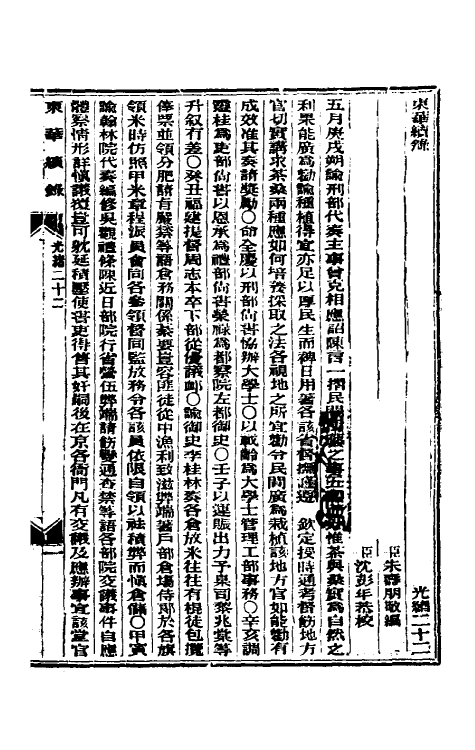 東華續錄
光緒二十二
臣朱壽朋敬編
臣沈彭年恭校
五月庚戌朔諭刑部代奏主事曾克相應詔陳言一摺民間惟茶與桑實爲自然之
利果能廣爲勸諭種植得宜亦足以厚民生而裨日用著各該省督撫遵 欽定授時通考督飭地方
官切實講求茶桑兩種應如何培養採取之法各視地之所宜勸令民間廣爲栽植該地方官如能勸有
成效准其奏請奬勵○命全慶以刑部尙書協辦大學士○以載齡爲大學士管理工部事務○辛亥調
靈桂爲吏部尙書以恩承爲禮部尙書榮祿爲都察院左都御史○壬子以運賑出力予臬司黎兆棠等
升敍有差○癸丑福建提督周志本卒下部從優議卹○諭御史李桂林奏各倉放米往往有棍徒包攬
俸票並領分肥請旨嚴禁等語倉務關係綦要豈容匪徒從中漁利致滋弊端著戶部倉場侍郎於各旗
領米時仿照甲米章程派員會同各參領督同監放務令各該員依限自領以袪積弊而愼倉儲○甲寅
諭翰林院代奏編修吳觀禮條陳近日部院行省營伍弊端請飭變通查禁等語各部院交議事件自應
體察情形詳愼議覆豈可躭延積壓使書吏得售其奸嗣後在京各衙門凡有交議及應辦事宜該堂官
東華續錄
光緒二十二
一